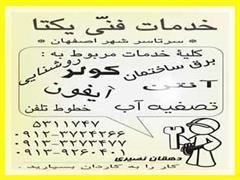 خدمات فنّی یکتا
* سرتاسر شهر اصفهان *
کلیهٔ خدمات مربوط به :
برق ساختمان کولر روشنایی
آنتن آیفون
تصفیه آب خطوط تلفن
۵۳۱۱۷۴۷
۰۹۱۳-۳۷۲۴۲۶۶
۰۹۱۳-۳۷۷۴۴۷۳
۰۹۱۳-۹۲۶۰۴۰۱
دهقان نصیری
کار را به کاردان بسپارید .